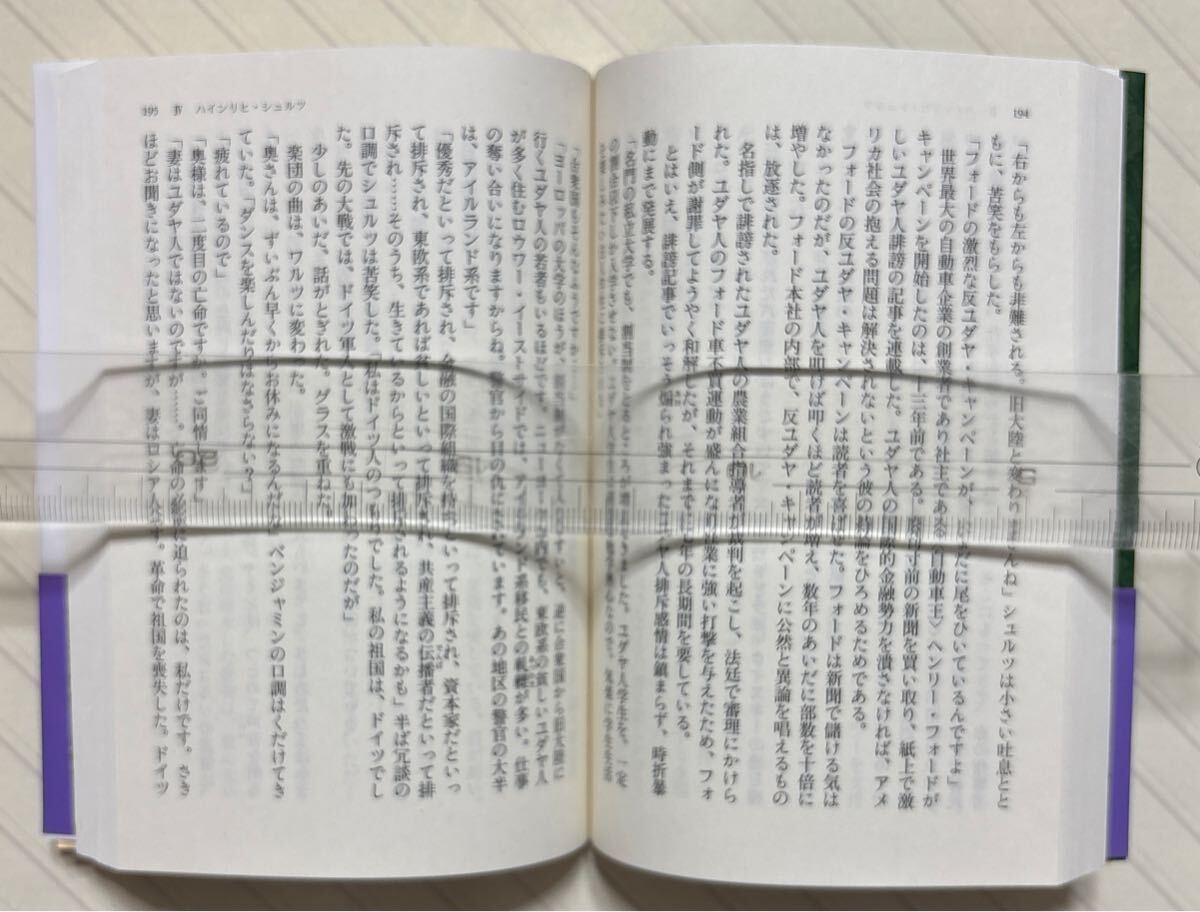 194
「右からも左からも非難される。旧大陸と変わりませんね」シュルツは小さい吐息とと
もに、苦笑をもらした。
「フォードの激烈な反ユダヤ・キャンペーンが、いまだに尾をひいているんですよ」
世界最大の自動車企業の創業者であり社主である〈自動車王〉ヘンリー・フォードが
キャンペーンを開始したのは、十三年前である。廃刊寸前の新聞を買い取り、紙上で激
しいユダヤ人誹謗の記事を連載した。ユダヤ人の国際的金融勢力を潰さなければ、アメ
リカ社会の抱える問題は解決されないという彼の持論をひろめるためである。
フォードの反ユダヤ・キャンペーンは読者を喜ばせた。フォードは新聞で儲ける気は
なかったのだが、ユダヤ人を叩けば叩くほど読者が増え、数年のあいだに部数を十倍に
増やした。フォード本社の内部で、反ユダヤ・キャンペーンに公然と異論を唱えるもの
は、放逐された。
名指しで誹謗されたユダヤ人の農業組合指導者が裁判を起こし、法廷で審理にかけら
れた。ユダヤ人のフォード車不買運動が盛んになり企業に強い打撃を与えたため、フォ
ード側が謝罪してようやく和解したが、それまでに七年の長期間を要している。
とはいえ、誹謗記事でいっそう煽られ強まったユダヤ人排斥感情は鎮まらず、時折暴
動にまで発展する。
「名門の私立大学でも、割当制をとるところが増えてきました。ユダヤ人学生を、一定
195 Ⅳ ハインリヒ・シュルツ
「ヨーロッパの大学のほうが、
行くユダヤ人の若者もいるほどです。ニューヨーク市内でも、東欧系の貧しいユダヤ人
が多く住むロウワー・イーストサイドでは、アイルランド系移民との軋轢が多い。仕事
の奪い合いになりますからね。警官から目の仇にされています。あの地区の警官の大半
は、アイルランド系です」
「優秀だといって排斥され、金融の国際組織を持つといって排斥され、資本家だといっ
て排斥され、東欧系であれば貧しいといって排斥され、共産主義の伝播者だといって排
斥され……そのうち、生きているからといって排斥されるようになるかも」半ば冗談の
口調でシュルツは苦笑した。「私はドイツ人のつもりでした。私の祖国は、ドイツでし
た。先の大戦では、ドイツ軍人として激戦にも加わったのだが」
少しのあいだ、話がとぎれた。グラスを重ねた。
楽団の曲は、ワルツに変わった。
「奥さんは、ずいぶん早くからお休みになるんだな」ベンジャミンの口調はくだけてき
ていた。「ダンスを楽しんだりはなさらない？」
「疲れているので」
「奥様は、二度目の亡命ですか。ご同情します」
「妻はユダヤ人ではないのですが……。亡命の必要に迫られたのは、私だけです。さき
ほどお聞きになったと思いますが、妻はロシア人です。革命で祖国を喪失した。ドイツ